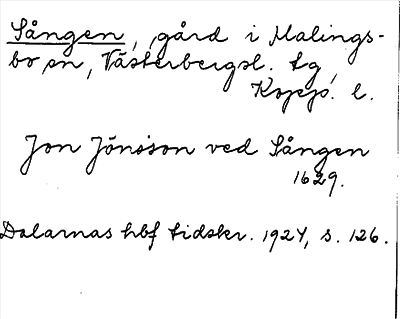 Sången, gård i Malings-
bo sn, Västerbergsl. tg,
Kopp. l.
Jon Jönsson ved Sången
1629.
Dalarnas hbf tidskr. 1924, s. 126.